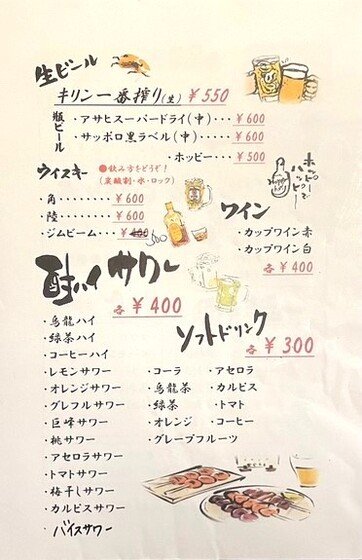 生ビール
キリン一番搾り(生) ¥550
瓶ビール
・アサヒスーパードライ(中)・・・¥600
・サッポロ黒ラベル(中)・・・・・¥600
・ホッピー・・・¥500
ホッピーでハッピー
ウイスキー
●飲み方をどうぞ!
(炭酸割・水・ロック)
・角・・・・・・¥600
・陸・・・・・・¥600
・ジムビーム・・¥400
500
ワイン
・カップワイン赤
・カップワイン白
各¥400
酎ハイ サワー
各¥400
・烏龍ハイ
・緑茶ハイ
・コーヒーハイ
・レモンサワー
・オレンジサワー
・グレフルサワー
・巨峰サワー
・桃サワー
・アセロラサワー
・トマトサワー
・梅干しサワー
・カルピスサワー
・バイスサワー
ソフトドリンク
各¥300
・コーラ ・アセロラ
・烏龍茶 ・カルピス
・緑茶 ・トマト
・オレンジ ・コーヒー
・グレープフルーツ